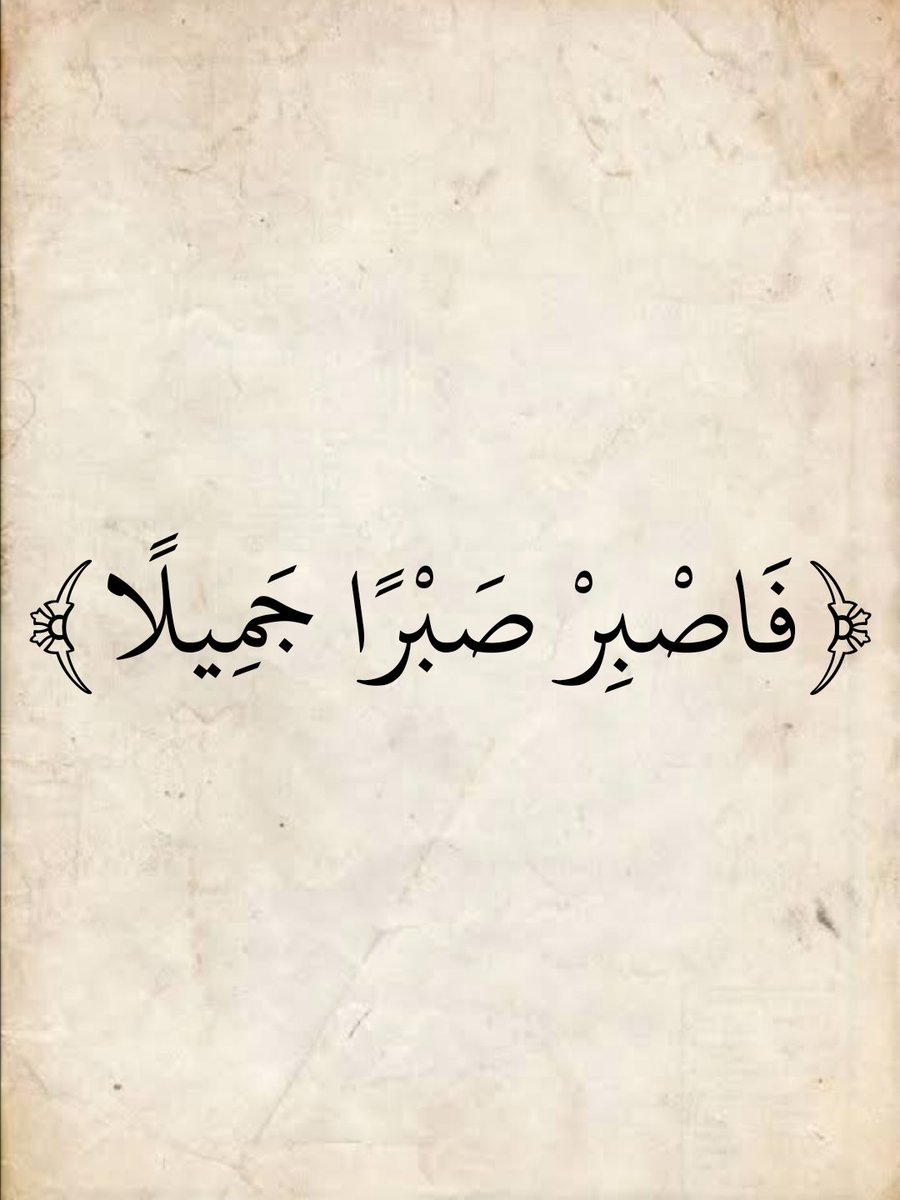 ﴿فَاصْبِرْ صَبْرًا جَمِيلًا﴾